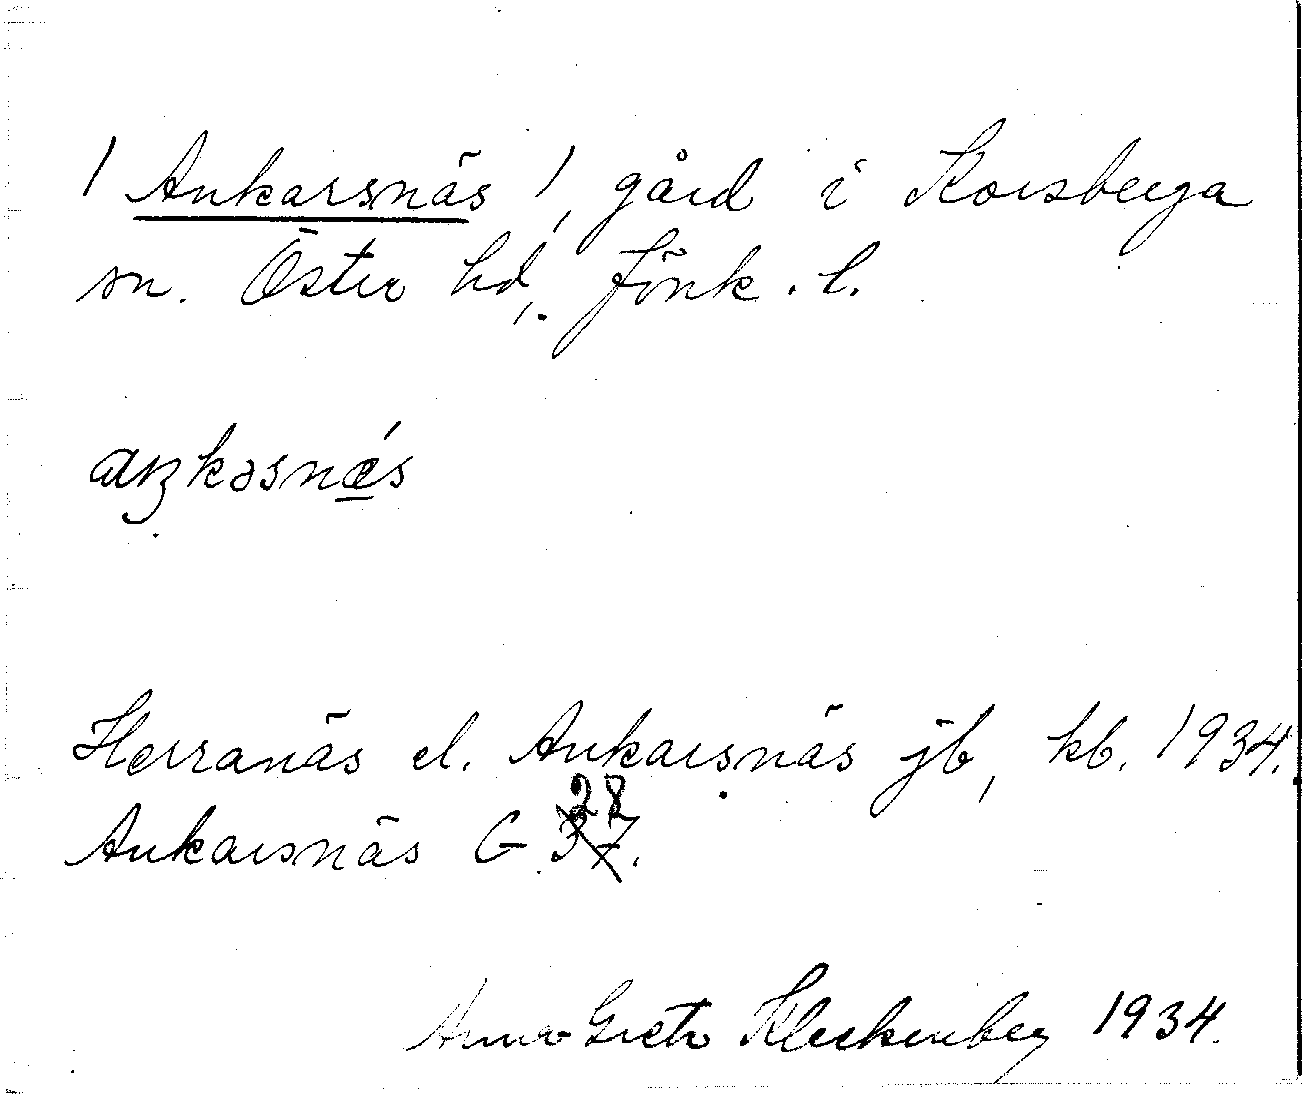 /Ankarsnäs/, gård i Korsberga
sn. Öster hd, Jönk. l.
aŋkəsnǽs
Herranäs el. Ankarsnäs jb, kb. 1934.
28
Ankarsnäs G 37.
Anna Greta Kleckenberg 1934.